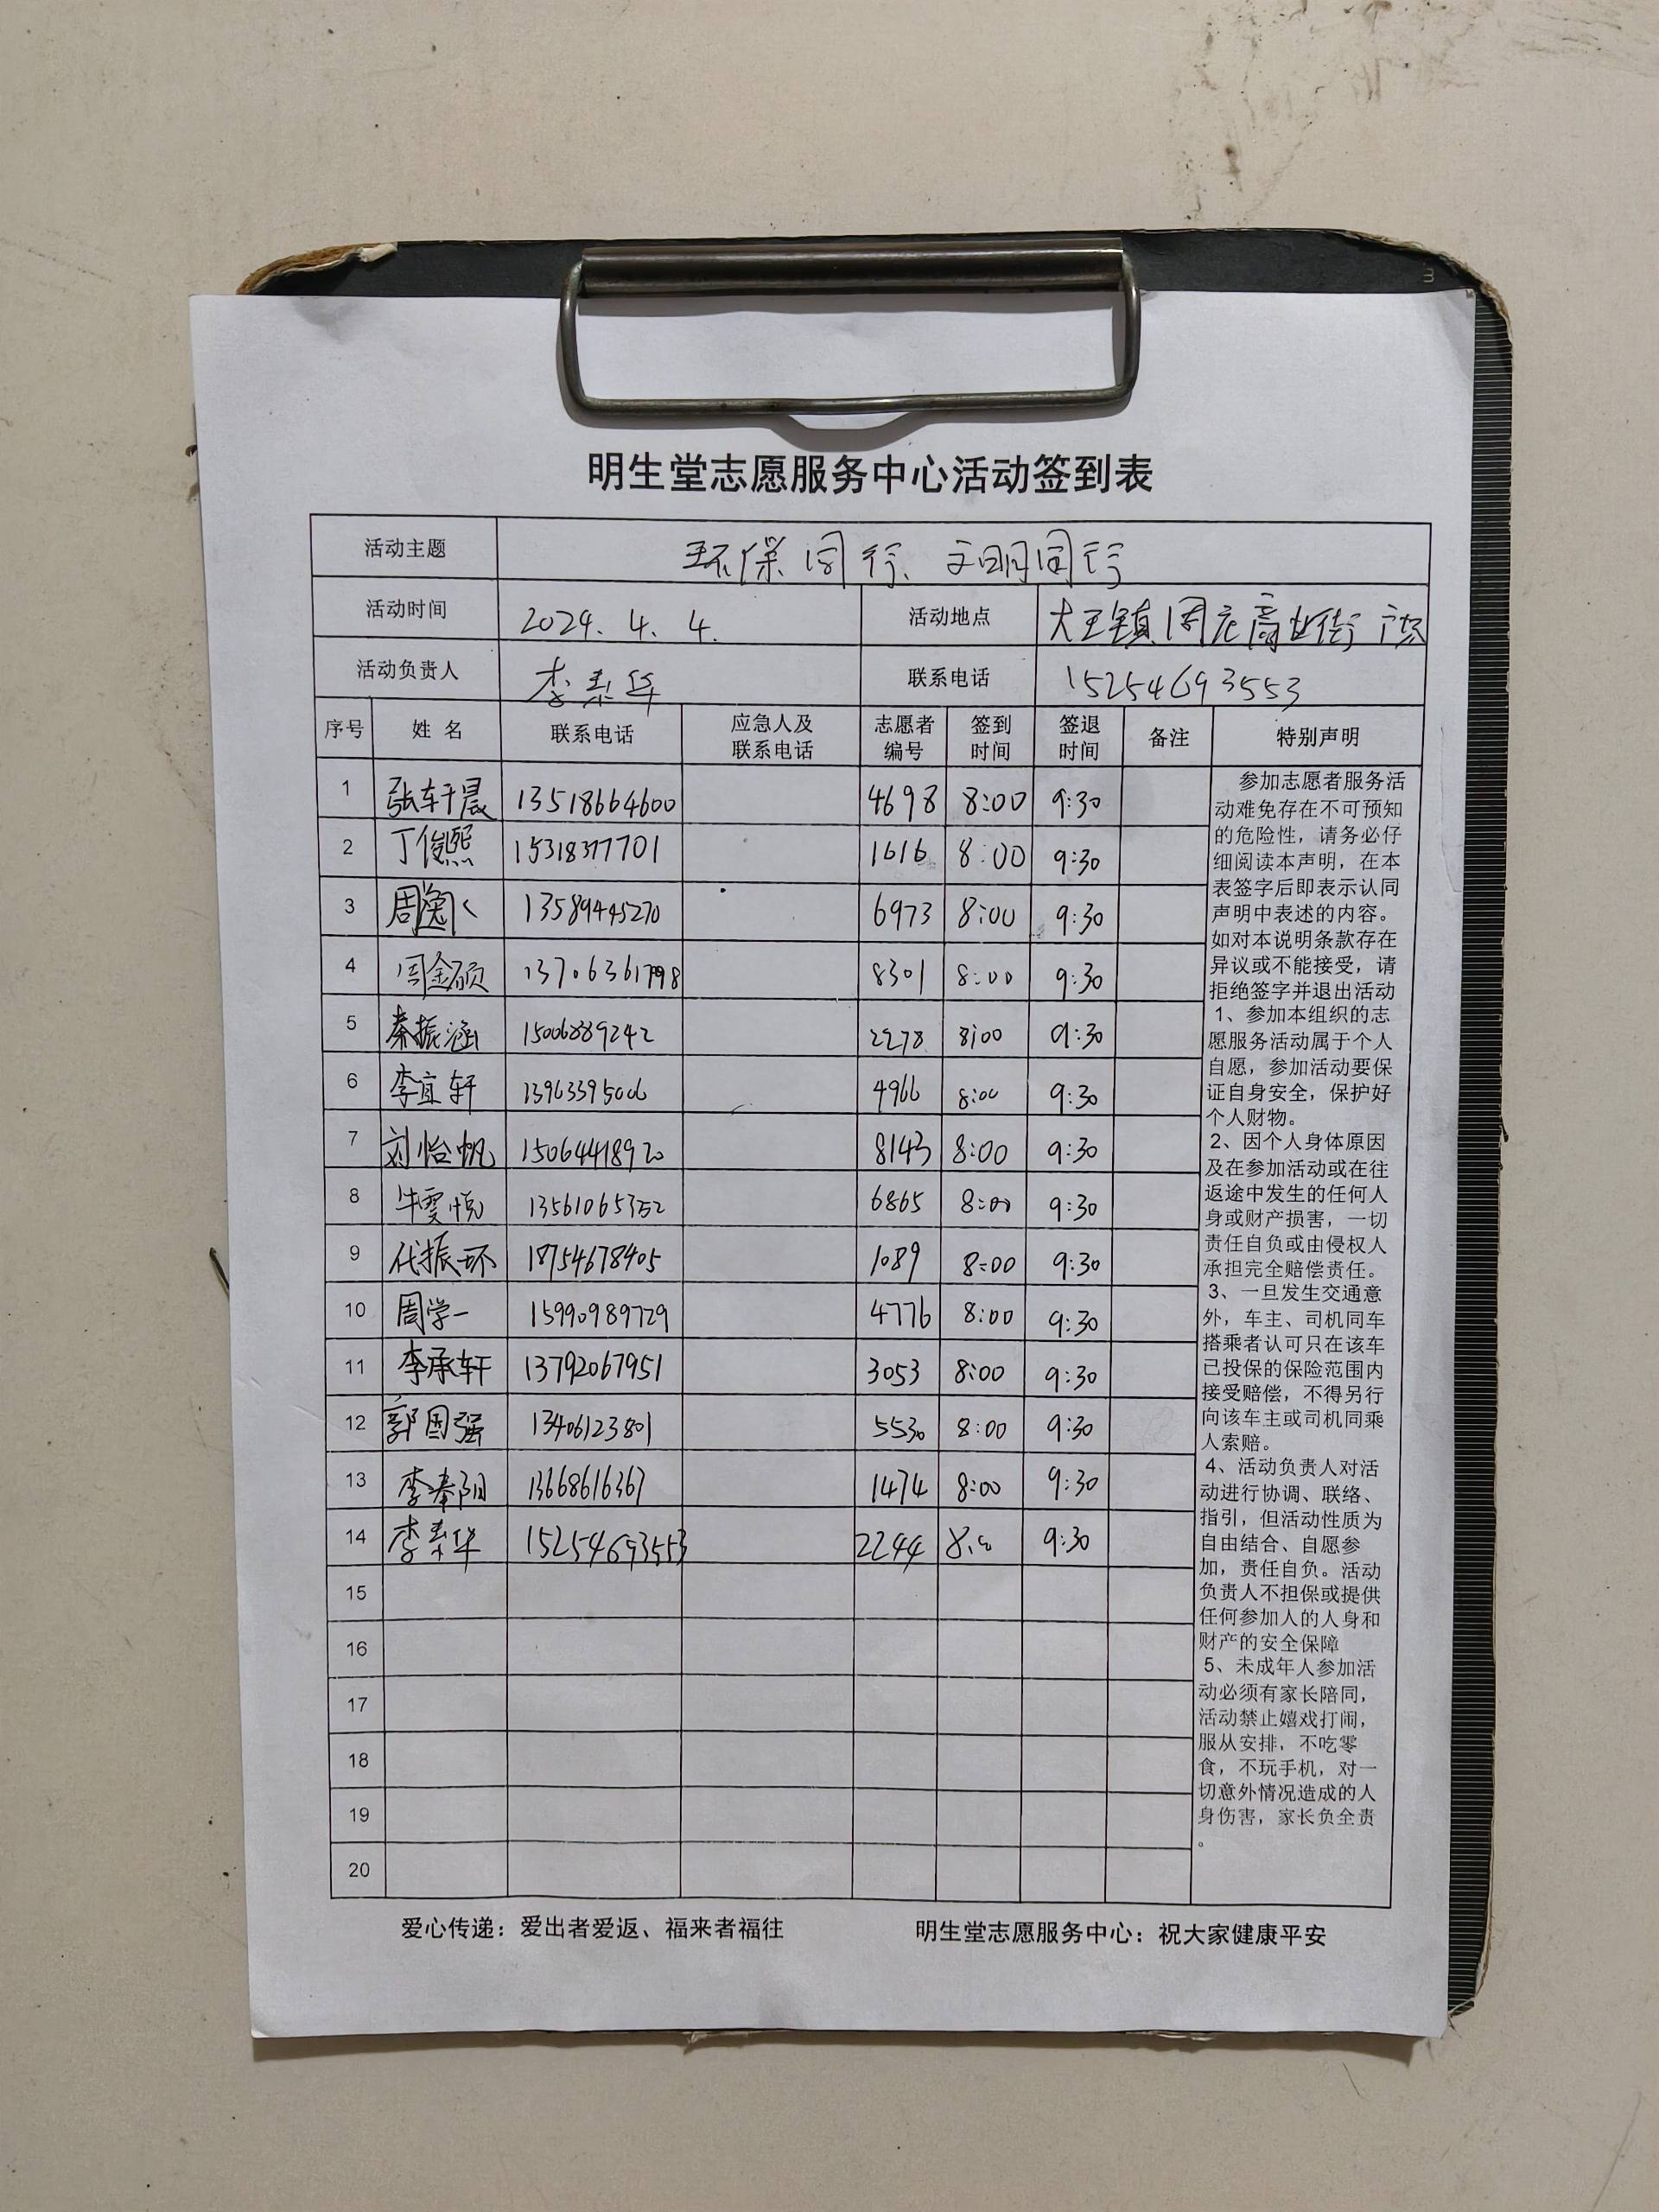 明生堂志愿服务中心活动签到表
活动主题 环保同行、文明同行
活动时间 2024.4.4. 活动地点 大王镇周庄商业街广场
活动负责人 李泰华 联系电话 15254693553
序号 姓名 联系电话 应急人及联系电话 志愿者编号 签到时间 签退时间 备注 特别声明
1 张轩晨 13518664600 4698 8:00 9:30
2 丁俊熙 15318377701 1616 8:00 9:30
3 周逸 13589445270 6973 8:00 9:30
4 周金硕 13706361798 8301 8:00 9:30
5 秦振涵 15006889242 2278 8:00 9:30
6 李宜轩 13963395006 4966 8:00 9:30
7 刘怡帆 15064418920 8143 8:00 9:30
8 牛雯悦 13561065352 6865 8:00 9:30
9 代振环 18754678405 1089 8:00 9:30
10 周学一 15990989729 4776 8:00 9:30
11 李承轩 13792067951 3053 8:00 9:30
12 郭国强 13406123801 5530 8:00 9:30
13 李奉阳 13668616367 1474 8:00 9:30
14 李泰华 15254693553 2244 8:00 9:30
15
16
17
18
19
20
参加志愿者服务活
动难免存在不可预知
的危险性，请务必仔
细阅读本声明，在本
表签字后即表示认同
声明中表述的内容。
如对本说明条款存在
异议或不能接受，请
拒绝签字并退出活动
1、参加本组织的志
愿服务活动属于个人
自愿，参加活动要保
证自身安全，保护好
个人财物。
2、因个人身体原因
及在参加活动或在往
返途中发生的任何人
身或财产损害，一切
责任自负或由侵权人
承担完全赔偿责任。
3、一旦发生交通意
外，车主、司机同车
搭乘者认可只在该车
已投保的保险范围内
接受赔偿，不得另行
向该车主或司机同乘
人索赔。
4、活动负责人对活
动进行协调、联络、
指引，但活动性质为
自由结合、自愿参
加，责任自负。活动
负责人不担保或提供
任何参加人的人身和
财产的安全保障
5、未成年人参加活
动必须有家长陪同，
活动禁止嬉戏打闹，
服从安排，不吃零
食，不玩手机，对一
切意外情况造成的人
身伤害，家长负全责
。
爱心传递：爱出者爱返、福来者福往 明生堂志愿服务中心：祝大家健康平安